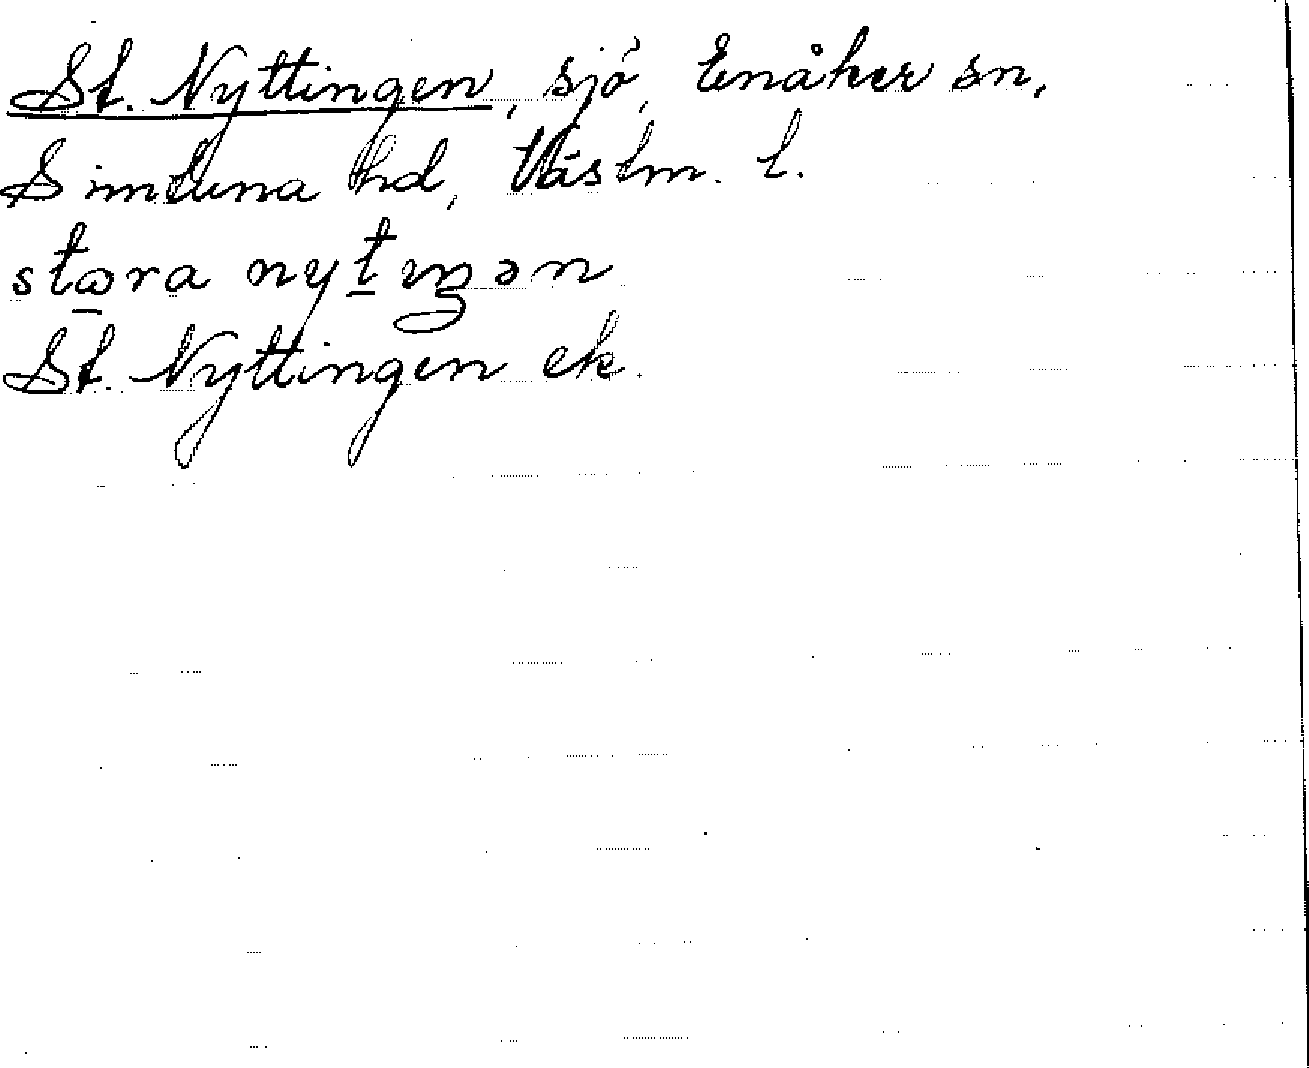 St. Nyttingen, sjö, Enåker sn,
Simtuna hd, Västm. l.
stɷra nytıŋən
St. Nyttingen ek.